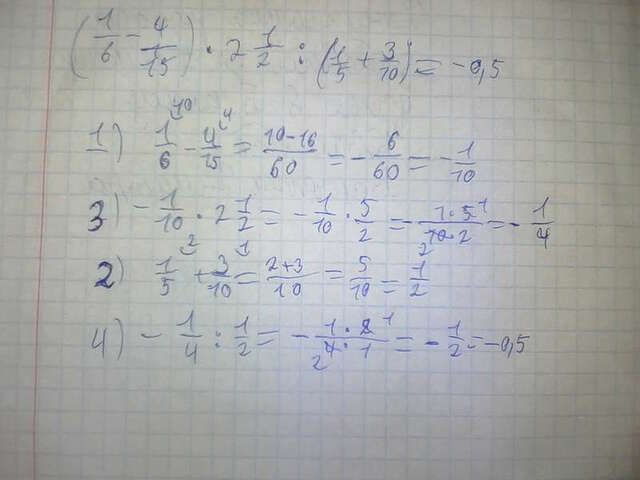 (1/6 - 4/15) · 2 1/2 : (1/5 + 3/10) = -0,5
1) 1/6 ⁽¹⁰ - 4/15 ⁽⁴ = 10-16/60 = - 6/60 = - 1/10
3) - 1/10 · 2 1/2 = - 1/10 · 5/2 = - 1·5 ¹/₂ 10·2 = - 1/4
2) 1/5 ⁽² + 3/10 ⁽¹ = 2+3/10 = 5/10 = 1/2
4) - 1/4 : 1/2 = - 1·2 ¹/₂ 4·1 = - 1/2 = -0,5